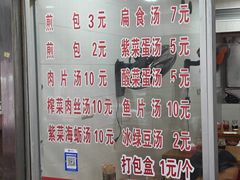 煎包 3元
扁食汤 7元
煎包 2元
紫菜蛋汤 5元
酸菜蛋汤 5元
肉片汤 10元
鱼片汤 10元
榨菜肉丝汤 10元
冰绿豆汤 2元
紫菜海蛎汤 10元
打包盒 1元/个